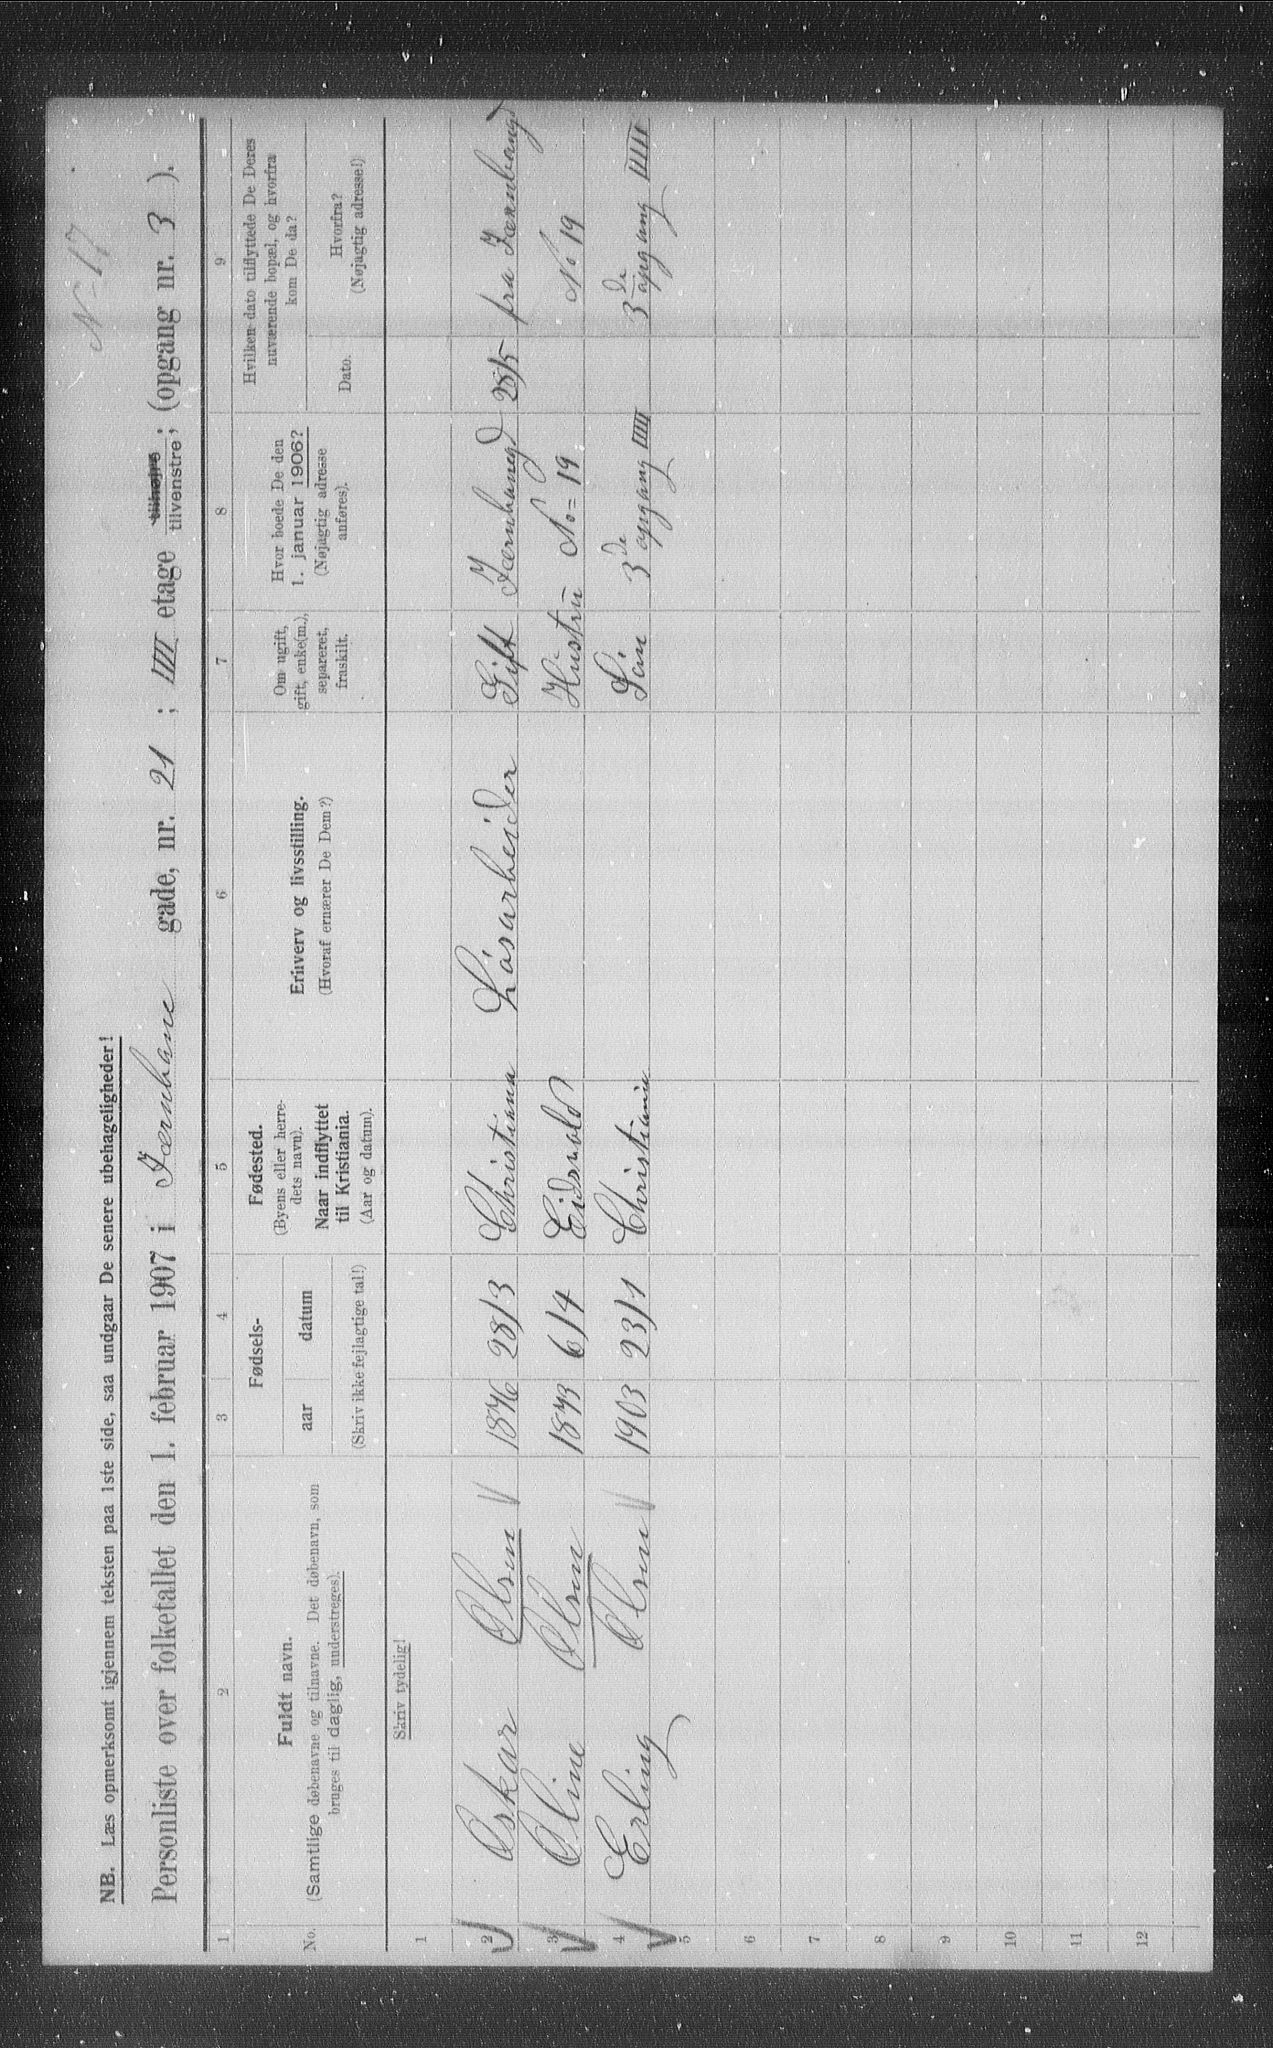 N-17
NB. Læs opmerksomt igjennem teksten paa 1ste side, saa undgaar De senere ubehageligheder!
Personliste over folketallet den 1. februar 1907 i Jærnbane gade, nr. 21 ; IIII etage tilhøjre tilvenstre ; (opgang nr. 3 ).
1 2 3 4 5 6 7 8 9
No.
Fuldt navn.
(Samtlige døbenavne og tilnavne. Det døbenavn, som
bruges til daglig, understreges).
Fødsels-
aar datum
(Skriv ikke fejlagtige tal!)
Fødested.
(Byens eller herre-
dets navn).
Naar indflyttet
til Kristiania.
(Aar og datum).
Erhverv og livsstilling.
(Hvoraf ernærer De Dem?)
Om ugift,
gift, enke(m.),
separeret,
fraskilt.
Hvor boede De den
1. januar 1906?
(Nøjagtig adresse
anføres).
Hvilken dato tilflyttede De Deres
nuværende bopæl, og hvorfra
kom De da?
Dato.
Hvorfra?
(Nøjagtig adresse!)
Skriv tydelig!
1
2 Oskar Olsen 1876 28/3 Christiana Løsarbeider Gift Jærnbanegd 28/5 fra Jærnbangd
3 Oline Olsen 1873 6/4 Eidsvold Hustru No = 19 No 19
4 Erling Olsen 1903 23/1 Christiania Sön 3de opgang IIII 3de opgang IIIII
5
6
7
8
9
10
11
12